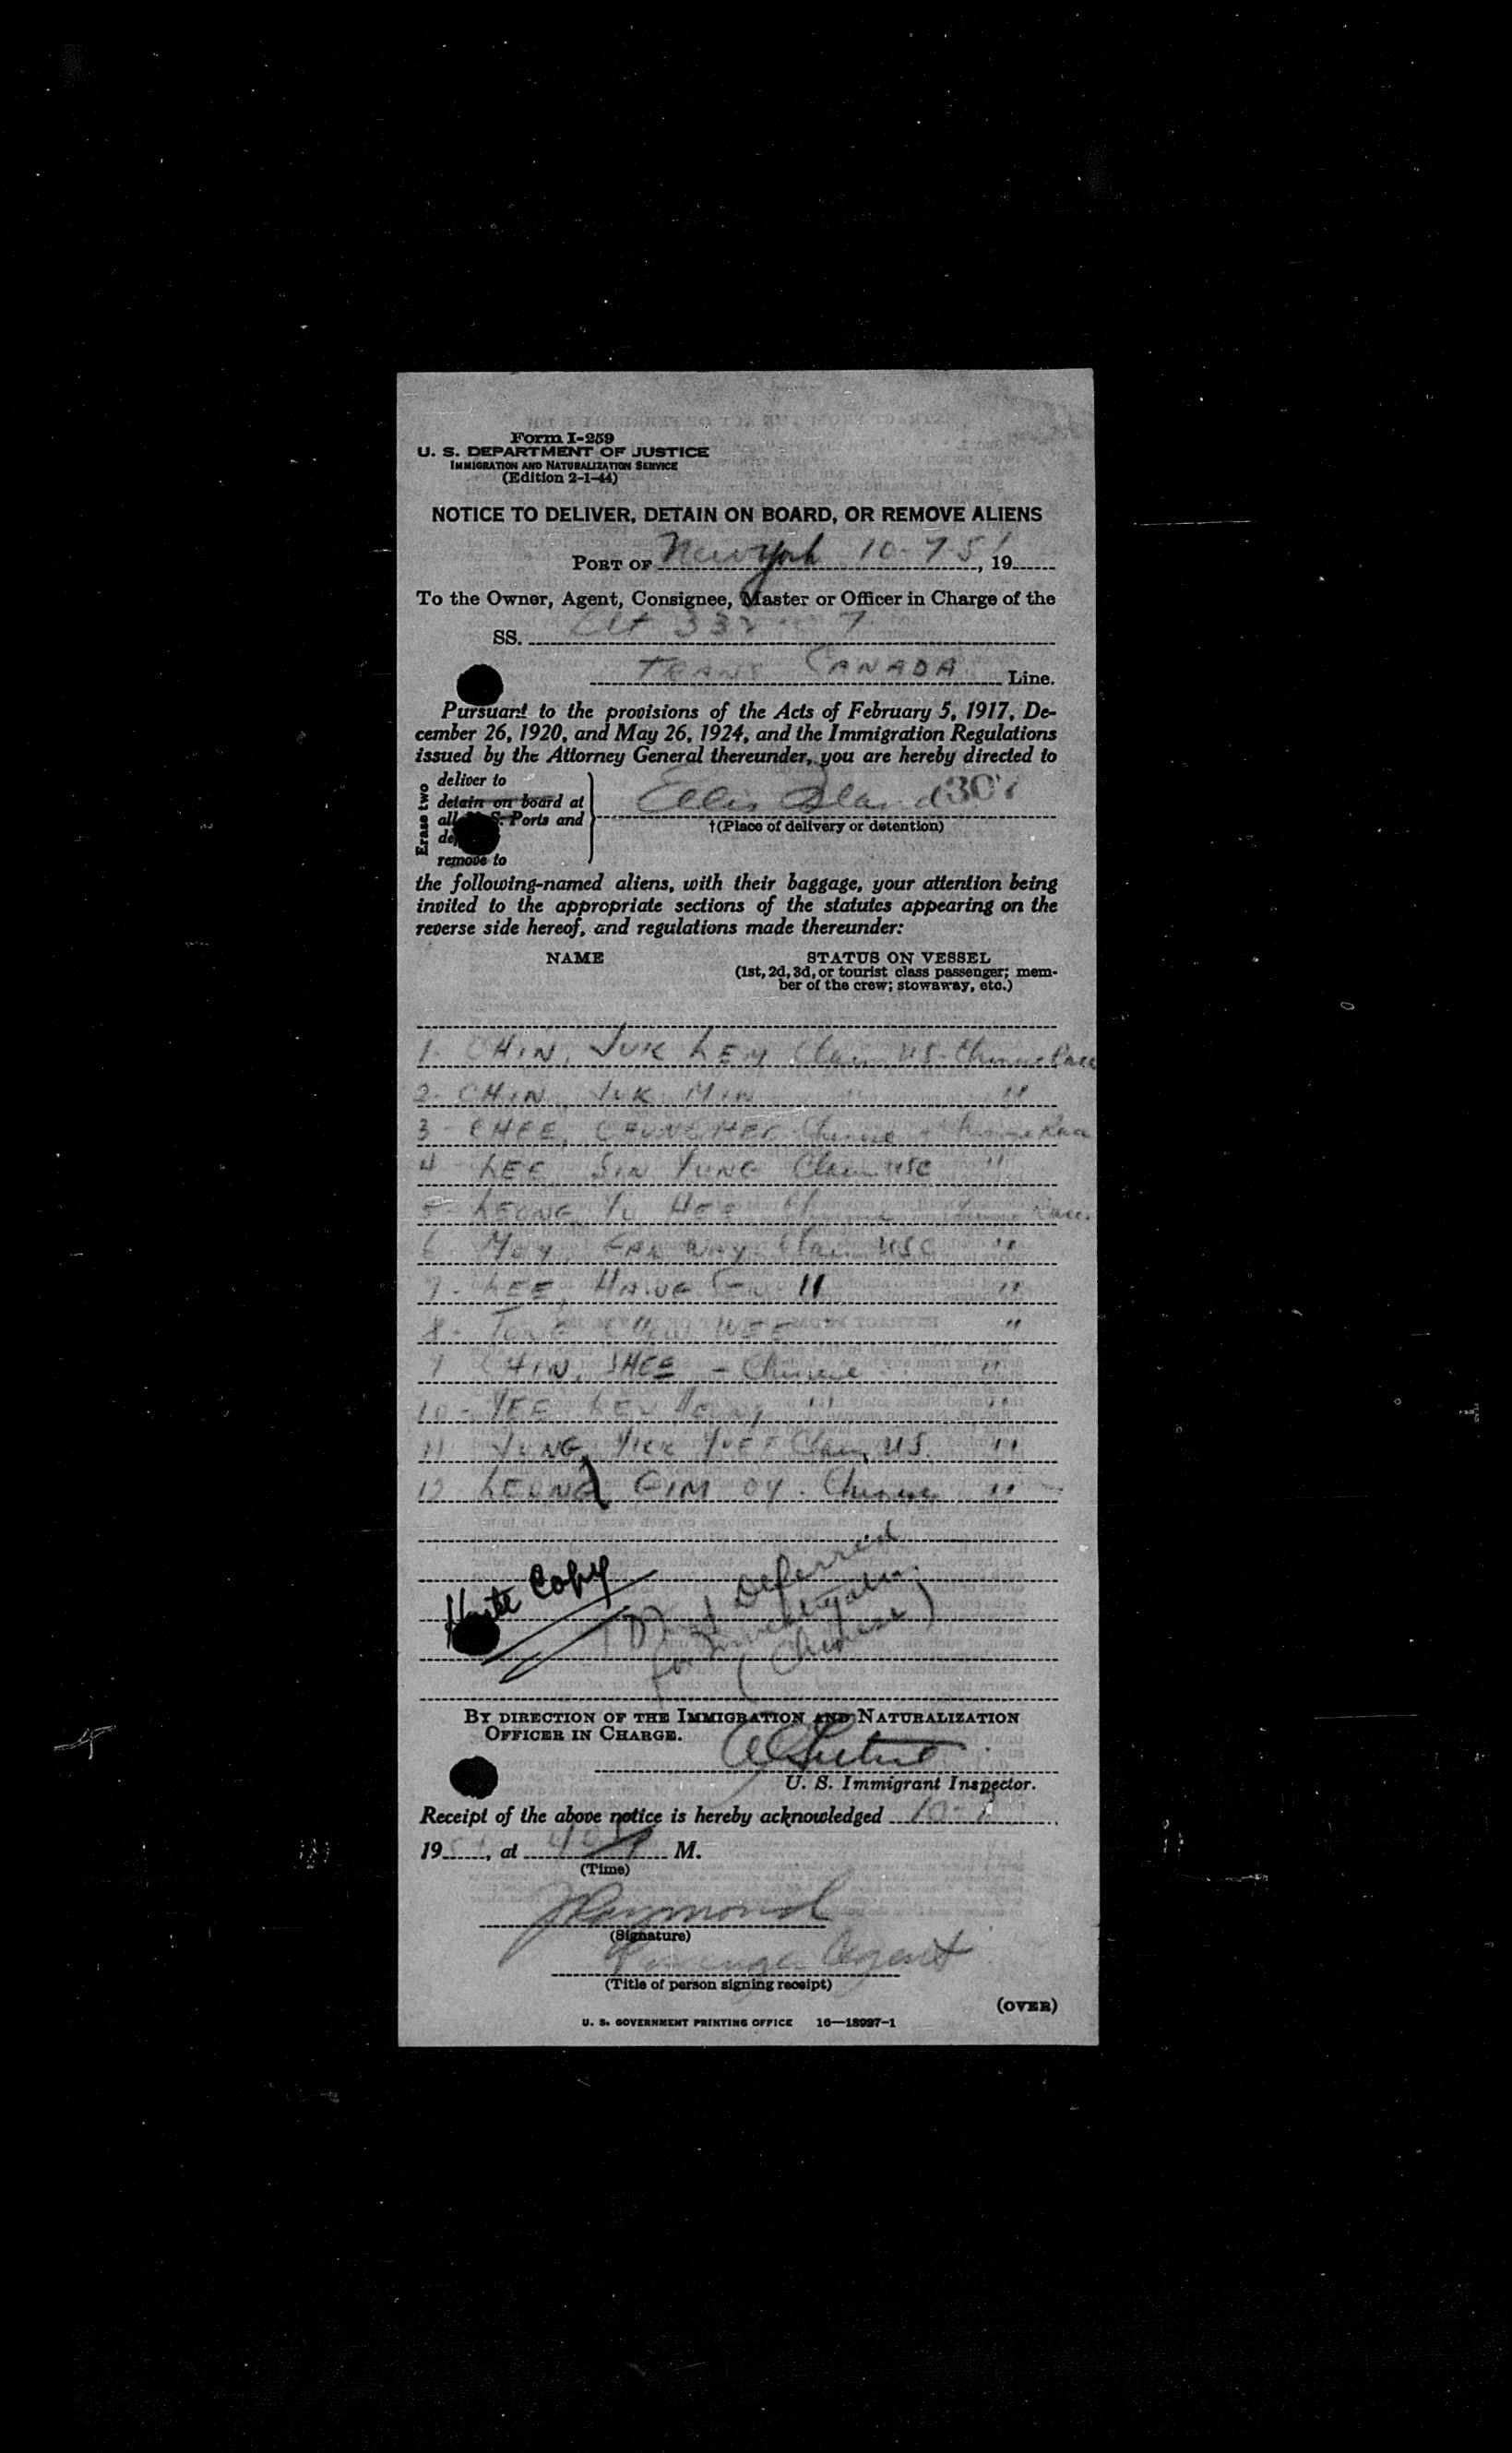 Form I-259
U. S. DEPARTMENT OF JUSTICE
IMMIGRATION AND NATURALIZATION SERVICE
(Edition 2-1-44)
NOTICE TO DELIVER, DETAIN ON BOARD, OR REMOVE ALIENS
PORT OF New York 10-7-51, 19
To the Owner, Agent, Consignee, Master or Officer in Charge of the
SS.
TRANS CANADA Line.
Pursuant to the provisions of the Acts of February 5, 1917, De-
cember 26, 1920, and May 26, 1924, and the Immigration Regulations
issued by the Attorney General thereunder, you are hereby directed to
Erase two
deliver to
detain on board at
all S. Ports and
remove to
Ellis Island
†(Place of delivery or detention)
the following-named aliens, with their baggage, your attention being
invited to the appropriate sections of the statutes appearing on the
reverse side hereof, and regulations made thereunder:
NAME STATUS ON VESSEL
(1st, 2d, 3d, or tourist class passenger; mem-
ber of the crew; stowaway, etc.)
1- CHIN, JUK LEM Claim US- Chinese Race
2- CHIN, JUK MIN "
3- CHEE, Chinese - Chinese Race
4 LEE SIN YUNG Claim USC "
5- LEONG YU HEE Race.
6 MOY, Claim USC "
7- LEE, " "
8- "
9 CHIN, SHEE - Chinese "
10- YEE " "
11 YUNG, Claim US. "
12 LEONG GIM OY. Chinese "
White Copy
Deferred
for
(Chinese)
BY DIRECTION OF THE IMMIGRATION AND NATURALIZATION
OFFICER IN CHARGE.
U. S. Immigrant Inspector.
Receipt of the above notice is hereby acknowledged 10-7
1951, at M.
(Time)
J Raymond
(Signature)
Passenger Agent
(Title of person signing receipt)
(OVER)
U. S. GOVERNMENT PRINTING OFFICE 16—18997-1